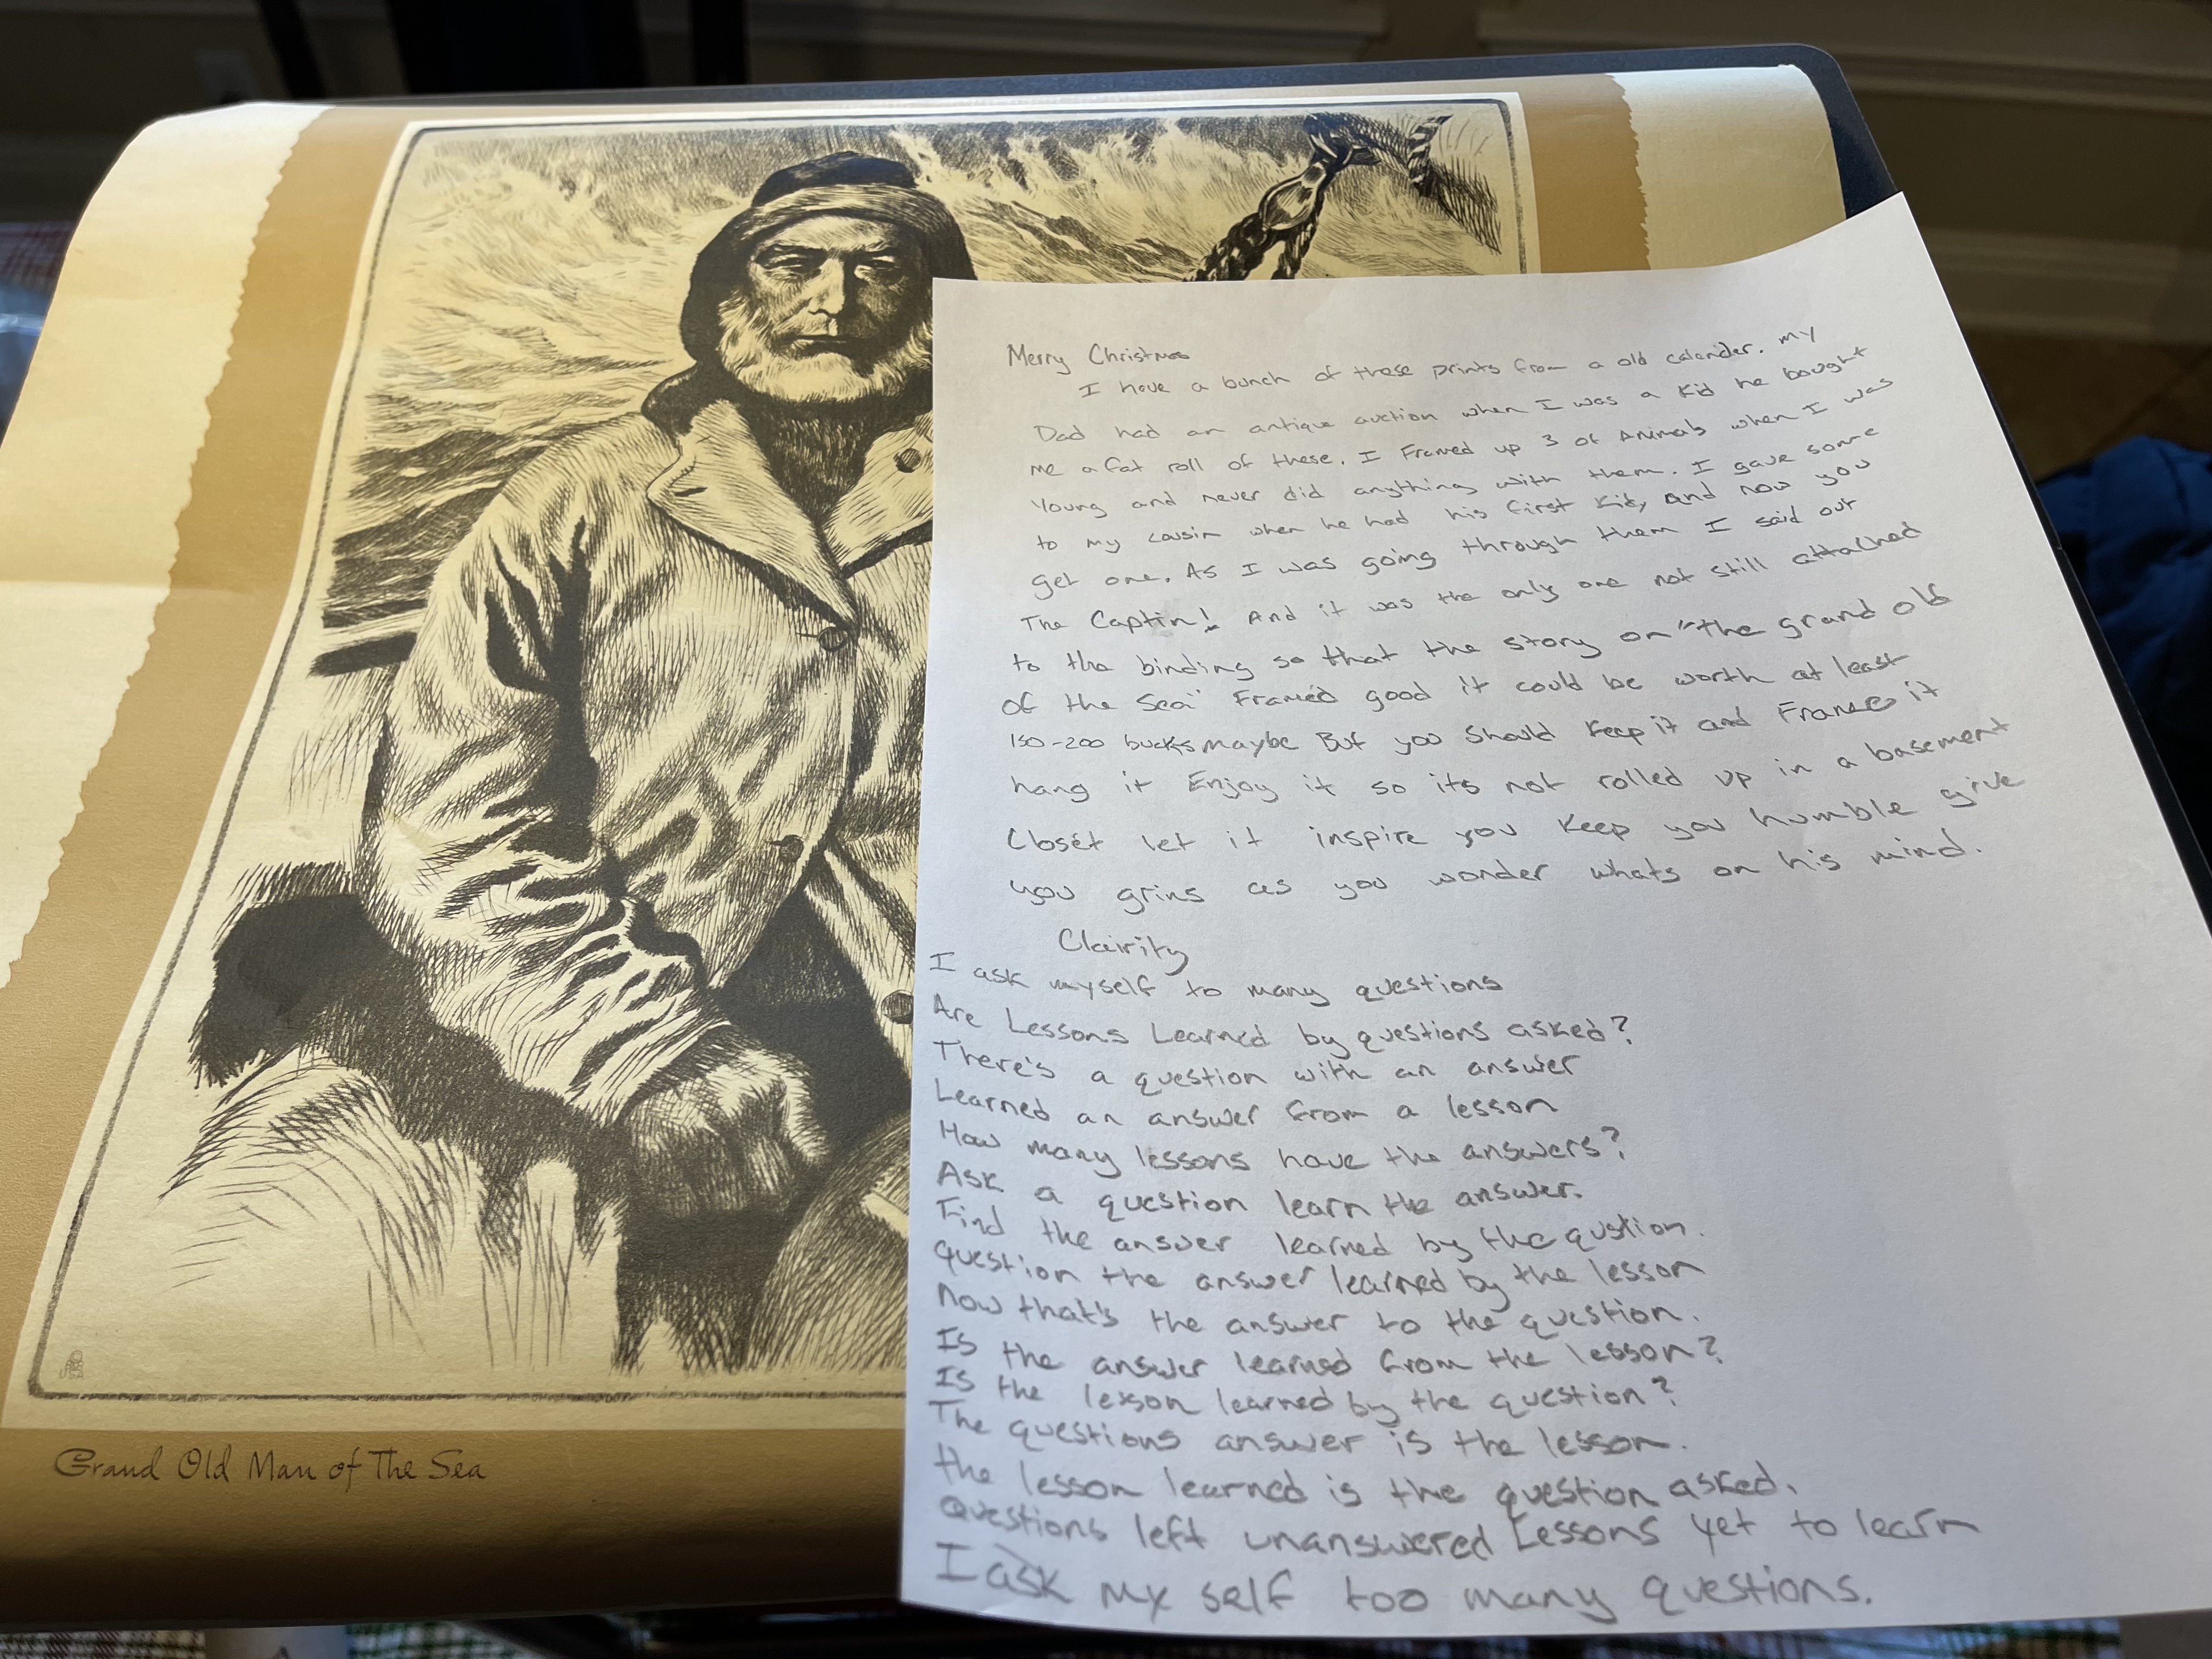 Merry Christmas
I have a bunch of these prints from a old calander. My
Dad had an antique auction when I was a kid he bought
me a fat roll of these. I Framed up 3 of Animals when I was
Young and never did anything with them. I gave some
to my cousin when he had his first kid, and now you
get one. As I was going through them I said out
The Captin! And it was the only one not still attached
to the binding so that the story on "the grand old
of the Sea" Framed good it could be worth at least
150-200 bucks maybe But you should keep it and Frame it
hang it Enjoy it so its not rolled up in a basement
Closet let it inspire you keep you humble give
you grins as you wonder whats on his mind.
Clairity
I ask myself to many questions
Are Lessons Learned by questions asked?
There's a question with an answer
Learned an answer from a lesson
How many lessons have the answers?
Ask a question learn the answer.
Find the answer learned by the qustion.
question the answer learned by the lesson
Now that's the answer to the question.
Is the answer learned from the lesson?
Is the lesson learned by the question?
The questions answer is the lesson.
the lesson learned is the question asked.
Questions left unanswered Lessons yet to learn
I ask my self too many questions.
Grand Old Man of The Sea